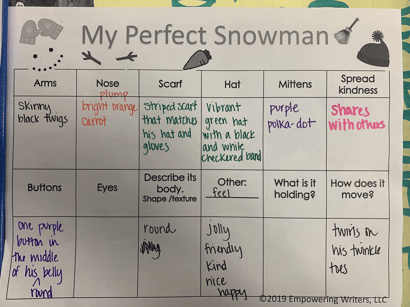 My Perfect Snowman
Arms
Nose
Scarf
Hat
Mittens
Spread
kindness
Skinny
black twigs
plump
bright orange
carrot
striped scarf
that matches
his hat and
gloves
Vibrant
green hat
with a black
and white
checkered band
purple
polka-dot
Shares
with others
Buttons
Eyes
Describe its
body.
Shape /texture
Other:
feel
What is it
holding?
How does it
move?
one purple
button in
the middle
of his belly
round
round
jolly
friendly
kind
nice
happy
twirls on
his twinkle
toes
©2019 Empowering Writers, LLC